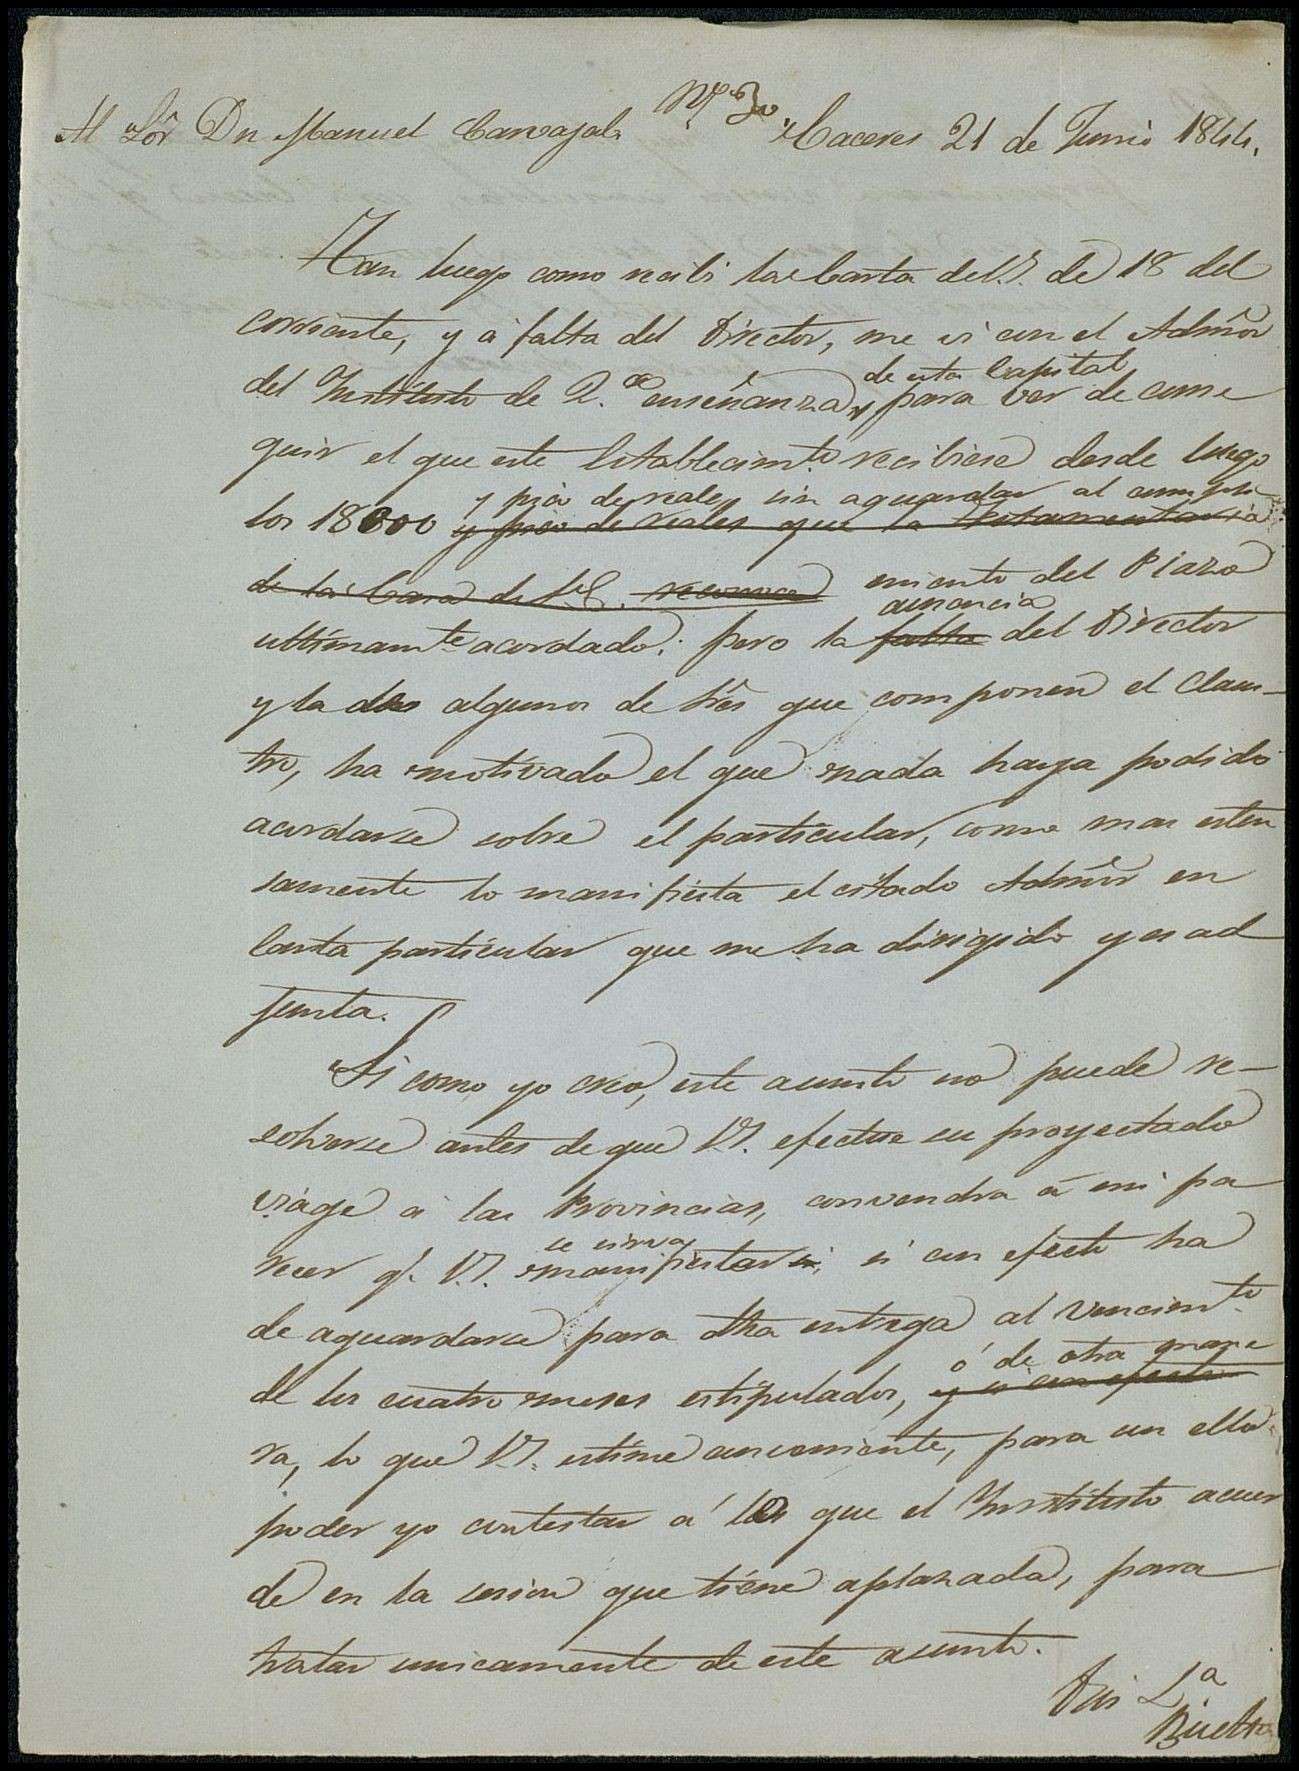 Al Sõr Dn Manuel Carvajal. Caceres 21 de Junio 1844.
Tan luego como recibi la Carta de V. de 18 del
corriente, y á falta del Director, me vi con el Admõr
de esta Capital
del Instituto de 2.ª enseñanza, para ver de conse
guir el que este Establecimto. recibiese desde luego
y pico de reales sin aguardar al cumpli
los 18000 y pico de reales que la testamentaria
de la Casa de reconoce miento del Plazo
ausencia
ultimamte. acordado: pero la falta del Director
y la de algunos de que componen el claus-
tro, ha motivado el que nada haya podido
acordarse sobre el particular, como mas esten
samente lo manifiesta el citado Admõr en
Carta particular que me ha dirigido y es ad
junta.
Si como yo creo, este asunto no puede re-
solverse antes de que V. efectue su proyectado
viage á las Provincias, convendra á mi pa
se sirva
recer q. V. manifestar si, si con efecto ha
de aguardarse para dha entrega al vencimto.
ó de otra mane
de los cuatro meses estipulados, y si con efecto
ra, lo que V. estime conveniente, para con ello
poder yo contestar á lo que el Instituto acuer
de en la sesion que tiene aplazada, para
tratar unicamente de este asunto.